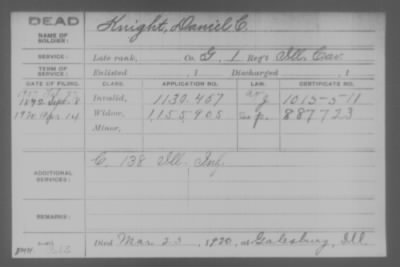 DEAD
NAME OF SOLDIER: Knight, Daniel C.
SERVICE: Late rank, Co. G, 1 Reg't Ill. Cav.
TERM OF SERVICE: Enlisted , 1 Discharged , 1
DATE OF FILING. CLASS. APPLICATION NO. LAW. CERTIFICATE NO.
1892 Sept. 8 Invalid, 1130.457 1013-511
1920 Apr. 14 Widow, 1155905 887723
Minor,
ADDITIONAL SERVICES: C. 138 Ill. Inf.
REMARKS:
Died Mar 23, 1920, at Galesburg, Ill.